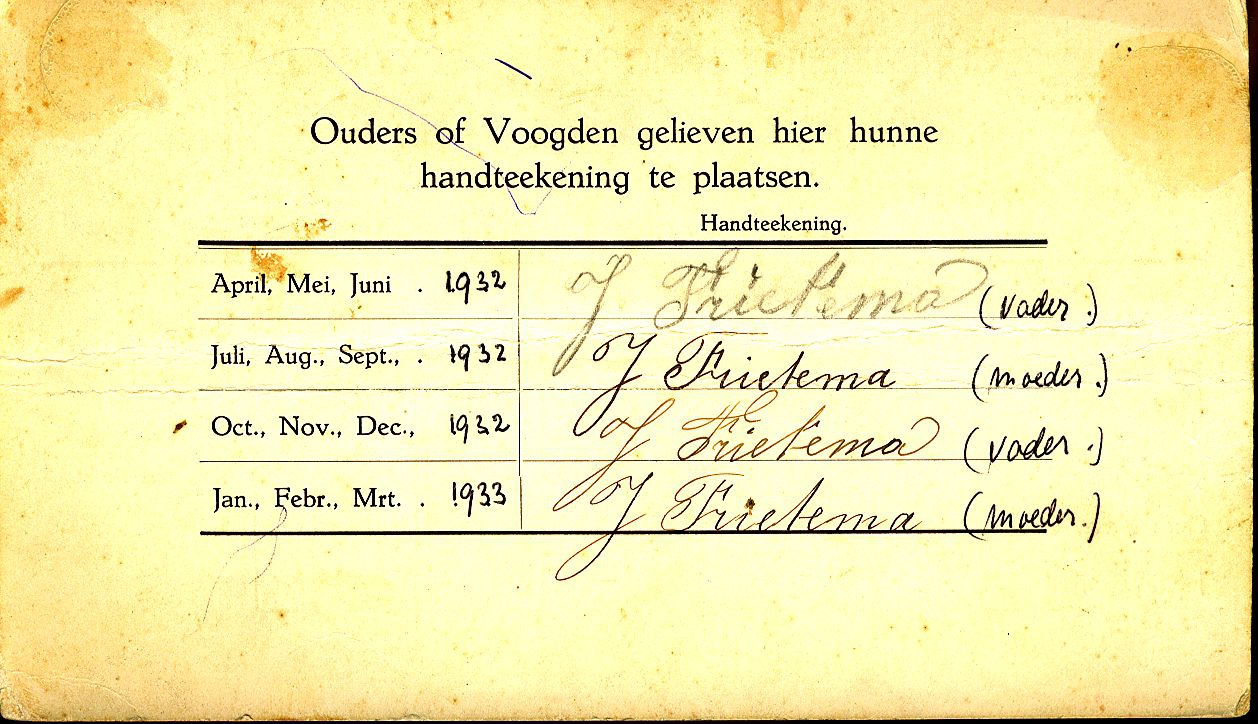 Ouders of Voogden gelieven hier hunne
handteekening te plaatsen.
Handteekening.
April, Mei, Juni . 1932 J Frietema (vader.)
Juli, Aug., Sept., . 1932 J Frietema (moeder.)
Oct., Nov., Dec., 1932 J Frietema (vader.)
Jan., Febr., Mrt. . 1933 J Frietema (moeder.)